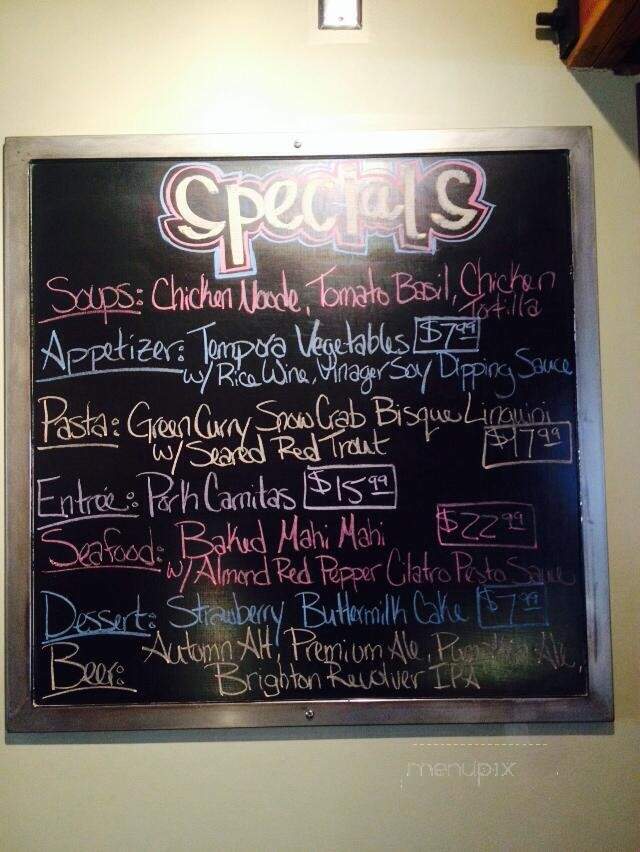 Specials
Soups: Chicken Noode, Tomato Basil, Chicken
Tortilla
Appetizer: Tempora Vegetables $7.99
w/ Rice Wine, Vinager Soy Dipping Sauce
Pasta: Green Curry Snow Crab Bisque Linguini
w/ Seared Red Trout $17.99
Entrée: Pork Carnitas $15.99
Seafood: Baked Mahi Mahi $22.99
w/ Almond Red Pepper Cilatro Pesto Sauce
Dessert: Strawberry Buttermilk Cake $7.99
Beer: Autumn Alt, Premium Ale, Pumpkin Ale,
Brighton Revolver IPA
menupix